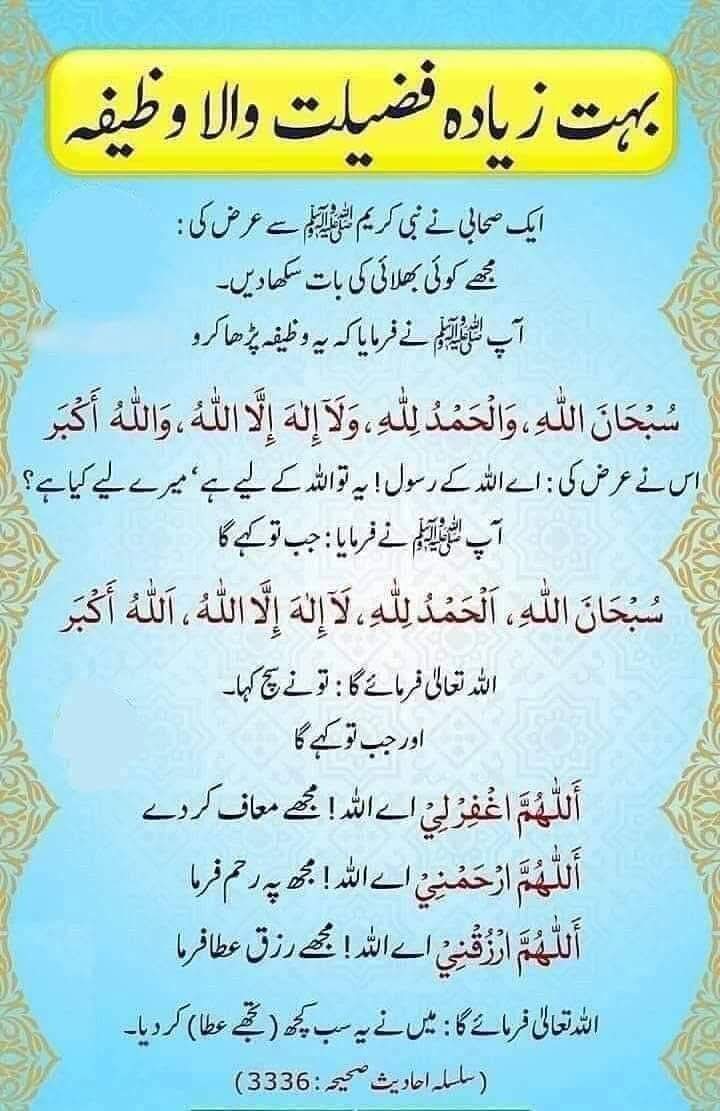 بہت زیادہ فضیلت والا وظیفہ
ایک صحابی نے نبی کریم ﷺ سے عرض کی :
مجھے کوئی بھلائی کی بات سکھا دیں۔
آپ ﷺ نے فرمایا کہ یہ وظیفہ پڑھا کرو
سُبْحَانَ اللهِ، وَالْحَمْدُ لِلّٰهِ، وَلَآ إِلٰهَ إِلَّا اللهُ، وَاللهُ أَكْبَر
اس نے عرض کی : اے اللہ کے رسول ! یہ تو اللہ کے لیے ہے‘ میرے لیے کیا ہے؟
آپ ﷺ نے فرمایا : جب تو کہے گا
سُبْحَانَ اللهِ، اَلْحَمْدُ لِلّٰهِ، لَآ إِلٰهَ إِلَّا اللهُ، اَللهُ أَكْبَر
اللہ تعالیٰ فرمائے گا : تو نے سچ کہا۔
اور جب تو کہے گا
أَللّٰهُمَّ اغْفِرْلِيْ اے اللہ ! مجھے معاف کر دے
أَللّٰهُمَّ ارْحَمْنِيْ اے اللہ ! مجھ پہ رحم فرما
أَللّٰهُمَّ ارْزُقْنِيْ اے اللہ ! مجھے رزق عطا فرما
اللہ تعالیٰ فرمائے گا : میں نے یہ سب کچھ (تجھے عطا) کر دیا۔
(سلسلہ احادیث صحیحہ : 3336)